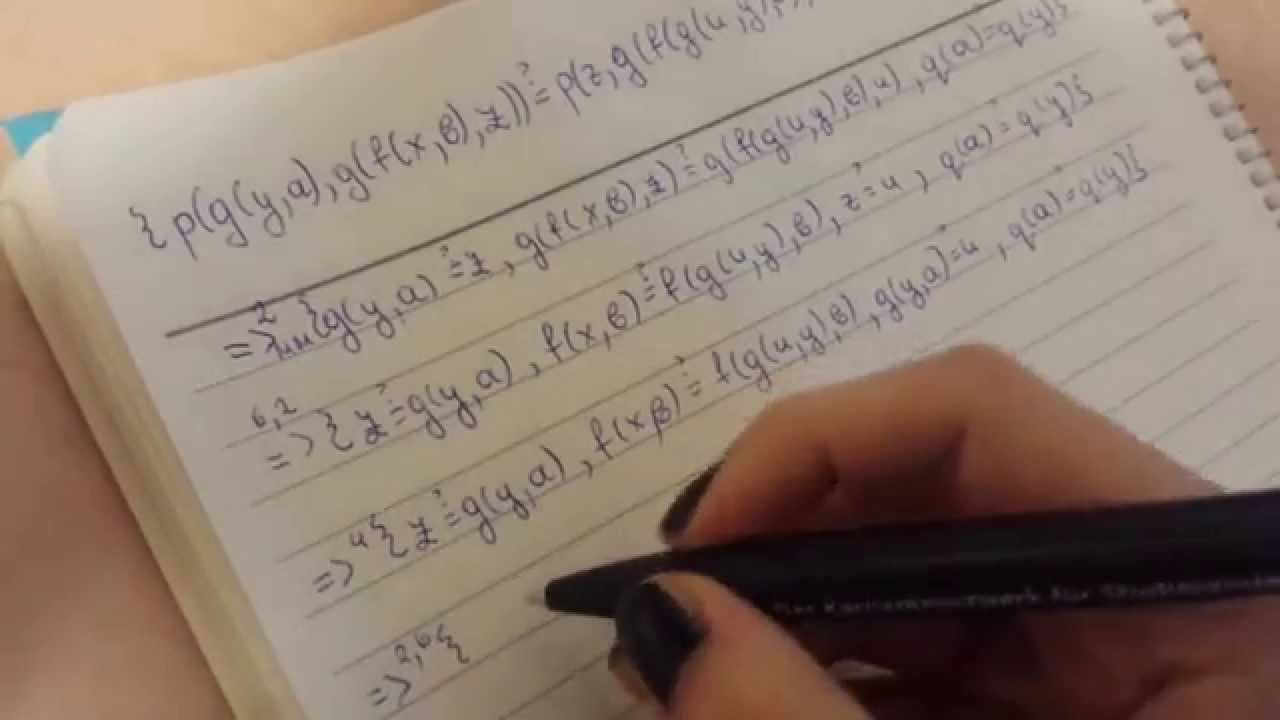 { p(g(y,a),g(f(x,b),z)) ≐? p(z,g(f(g(u,y),
=>² {g(y,a) ≐? z , g(f(x,b),z) ≐? g(f(g(u,y),b),u) , q(a) ≐ q(y)}
=>⁶,² { z ≐? g(y,a) , f(x,b) ≐? f(g(u,y),b) , z ≐ u , q(a) ≐ q(y)}
=>⁴ { z ≐? g(y,a) , f(x,b) ≐? f(g(u,y),b) , g(y,a) ≐? u , q(a) ≐? q(y)}
=>²,⁶ {